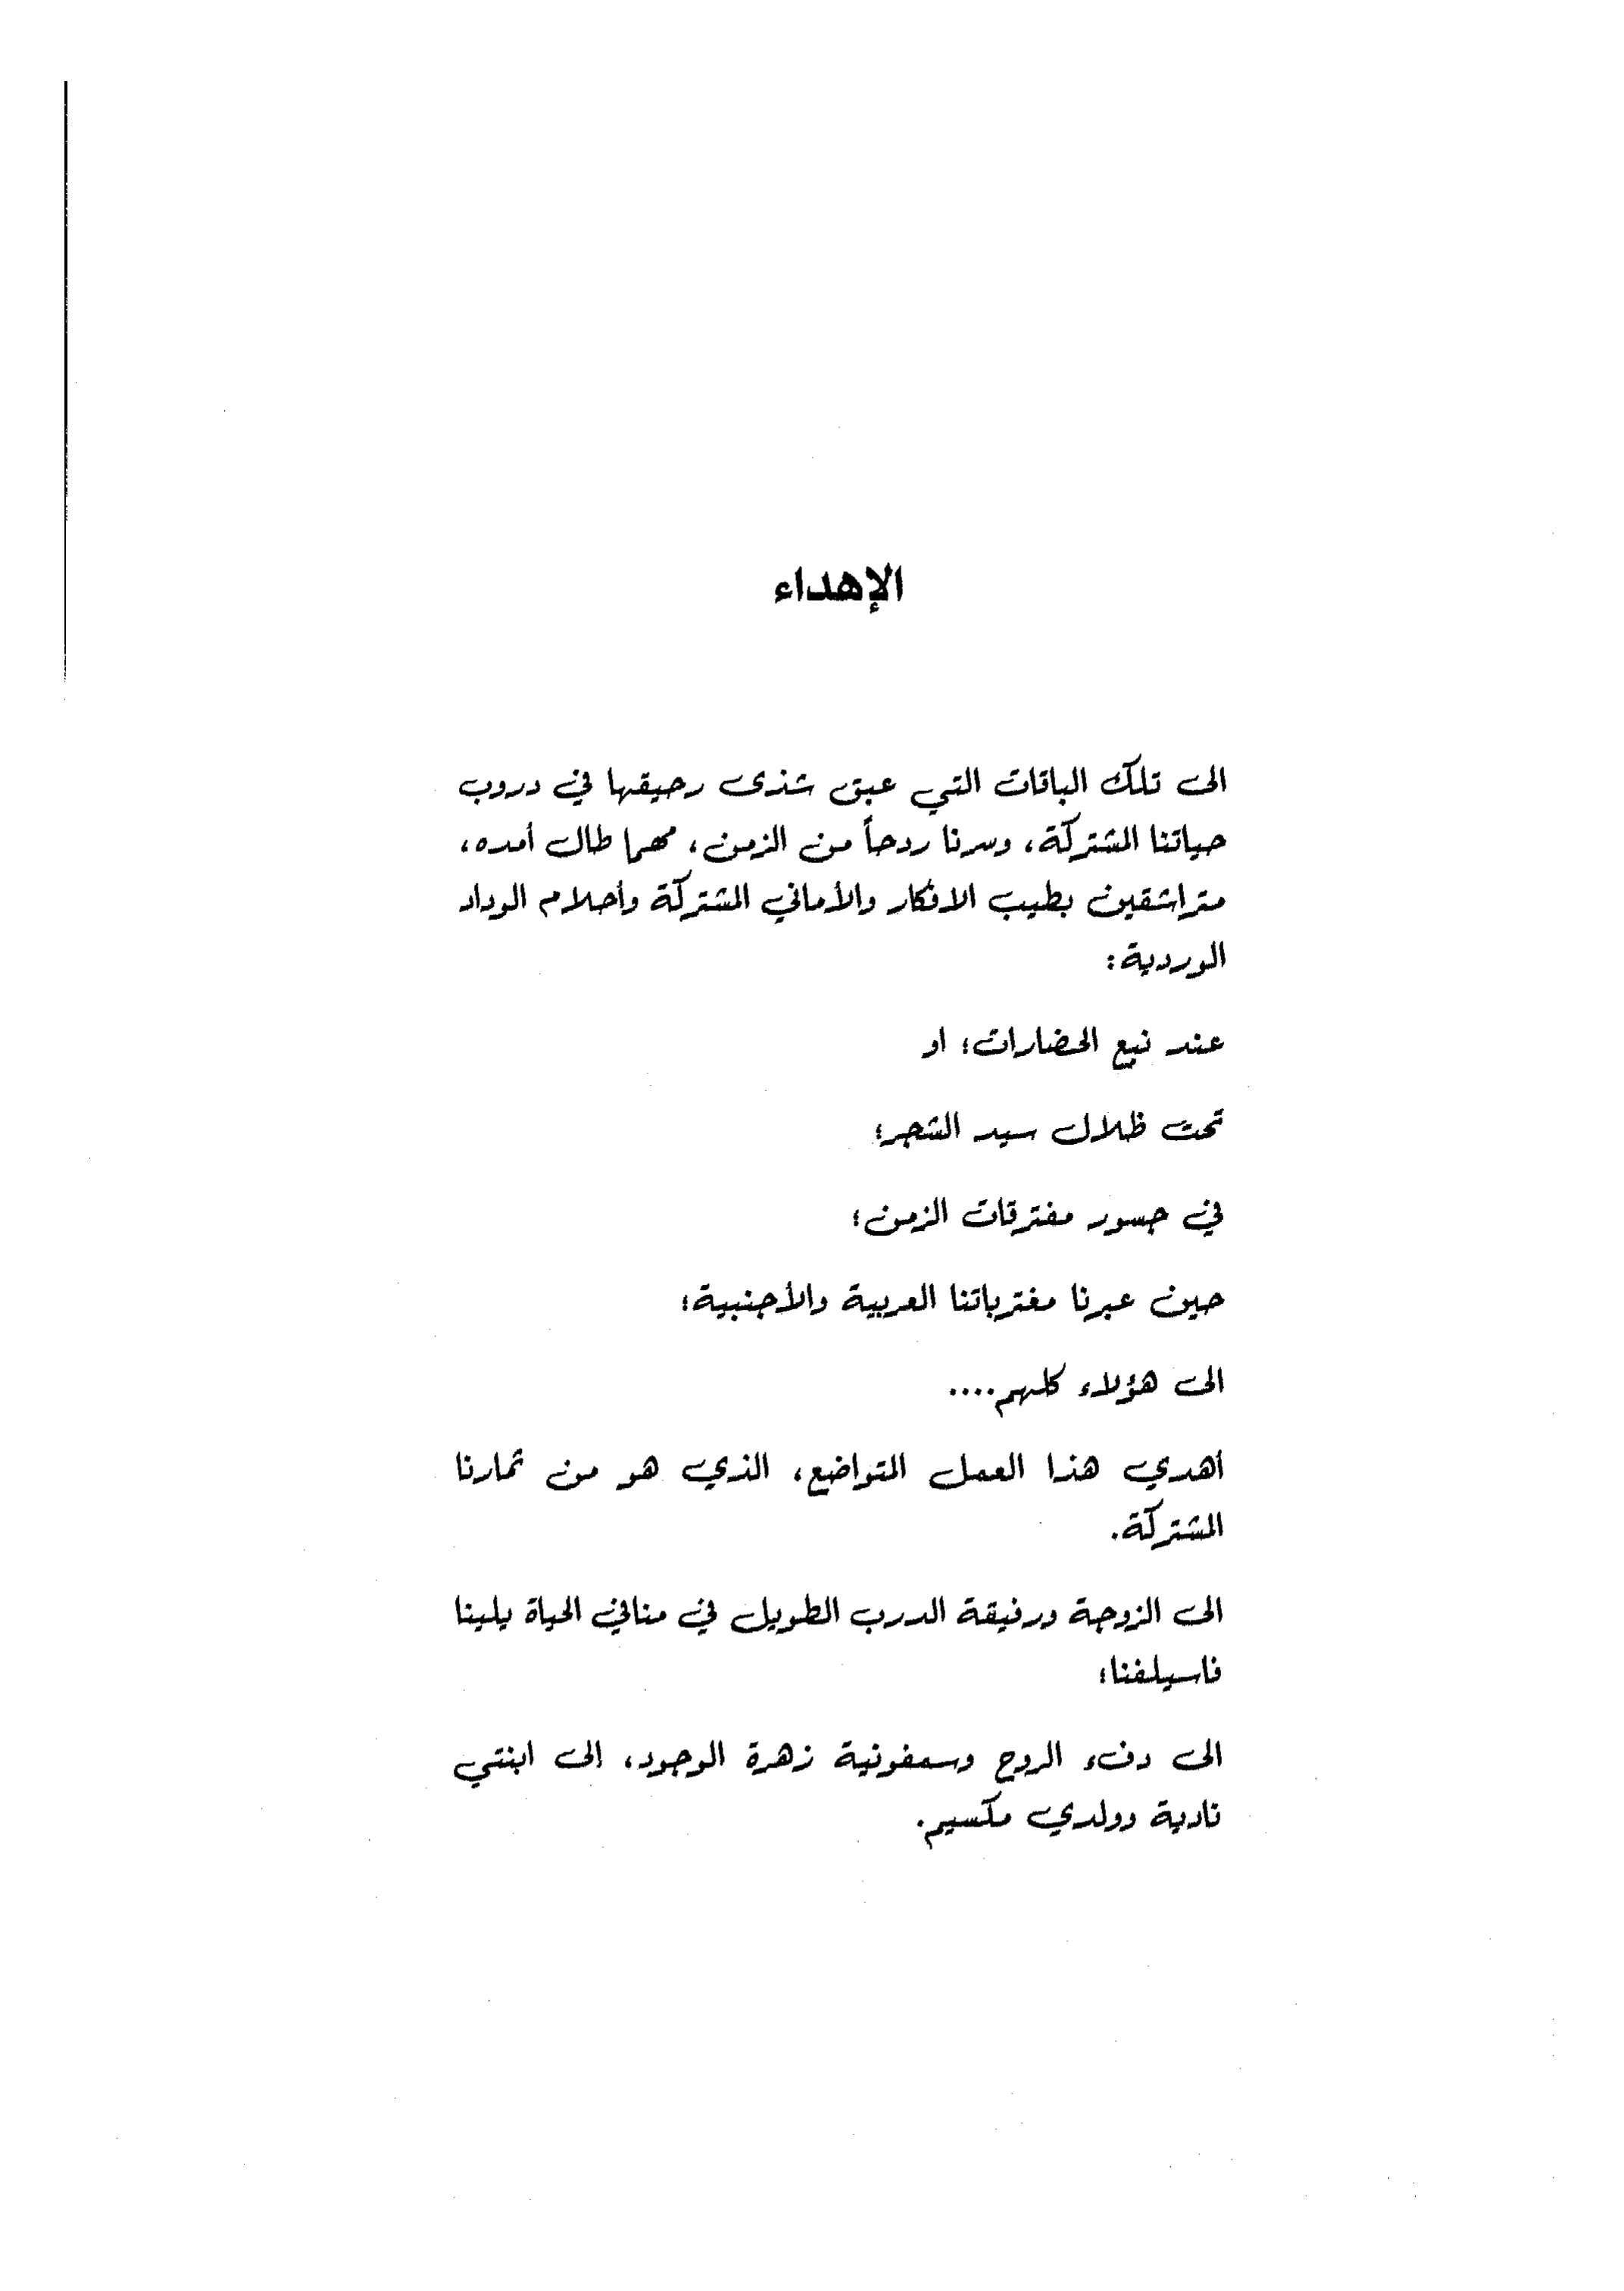 الإهداء
الى تلك الباقات التي عبق شذى رحيقها في دروب
حياتنا المشتركة، وسرنا ردحاً من الزمن، مهما طال أمده،
متراشقين بطيب الافكار والأماني المشتركة وأحلام الوداد
الوردية:
عند نبع الحضارات؛ او
تحت ظلال سيد الشجر؛
في جسور مفترقات الزمن؛
حين عبرنا مغترباتنا العربية والأجنبية؛
الى هؤلاء كلهم....
أهدي هذا العمل المتواضع، الذي هو من ثمارنا
المشتركة.
الى الزوجة ورفيقة الدرب الطويل في منافي الحياة يلينا
فاسيلفنا؛
الى دفء الروح وسمفونية زهرة الوجود، إلى ابنتي
نادية وولدي مكسيم.